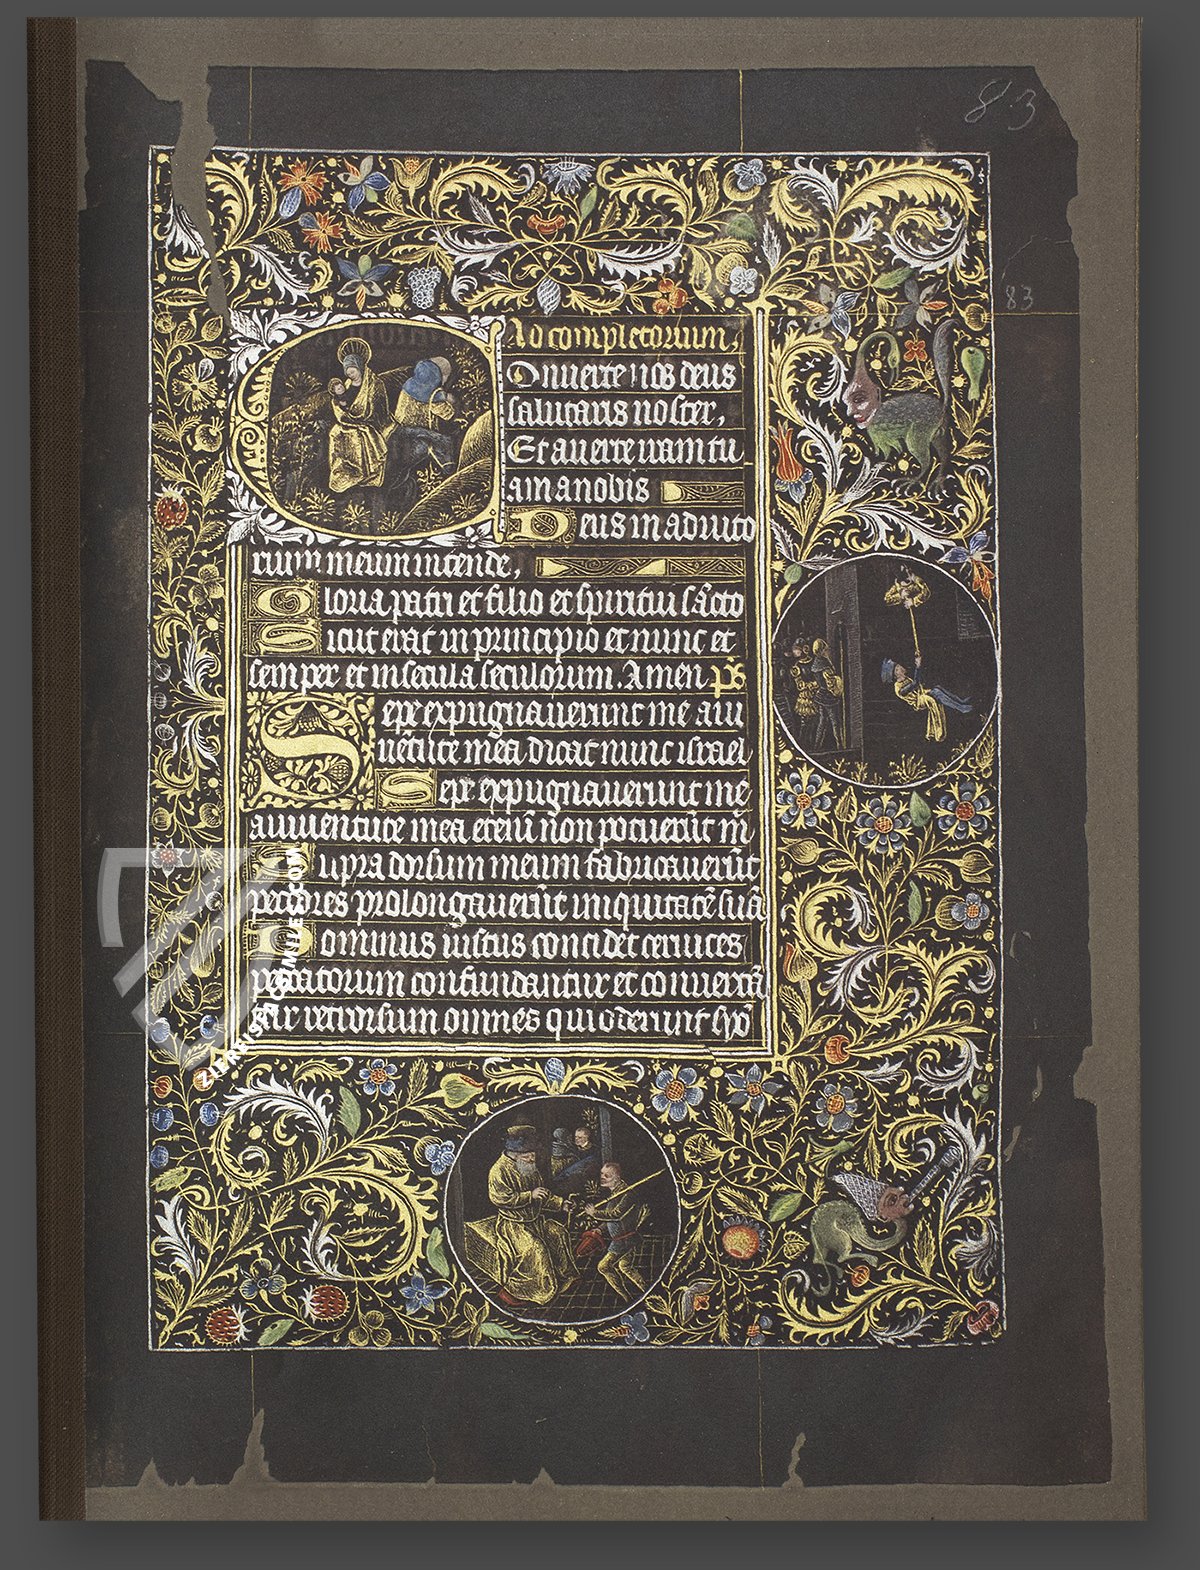 83
83
Ad completorium,
Onuerte nos deus
salutaris noster,
Et auerte iram tu
am a nobis
Deus in adiuto
rium meum intende,
Gloria patri et filio et spiritui sc̄to
Sicut erat in principio et nunc et
semper et in secula seculorum. Amen p̄s
Sepe expugnauerunt me a iu
uētute mea dicat nunc israel
Sepe expugnauerunt me
a iuuentute mea etenī non potuerūt m
Supra dorsum meum fabricauerūt
peccatores prolongauerūt iniquitatē suā
Dominus iustus concidet ceruices
peccatorum confundantur et conuertā
tur retrorsum omnes qui oderunt syō
ZIEREIS FACSIMILES.COM